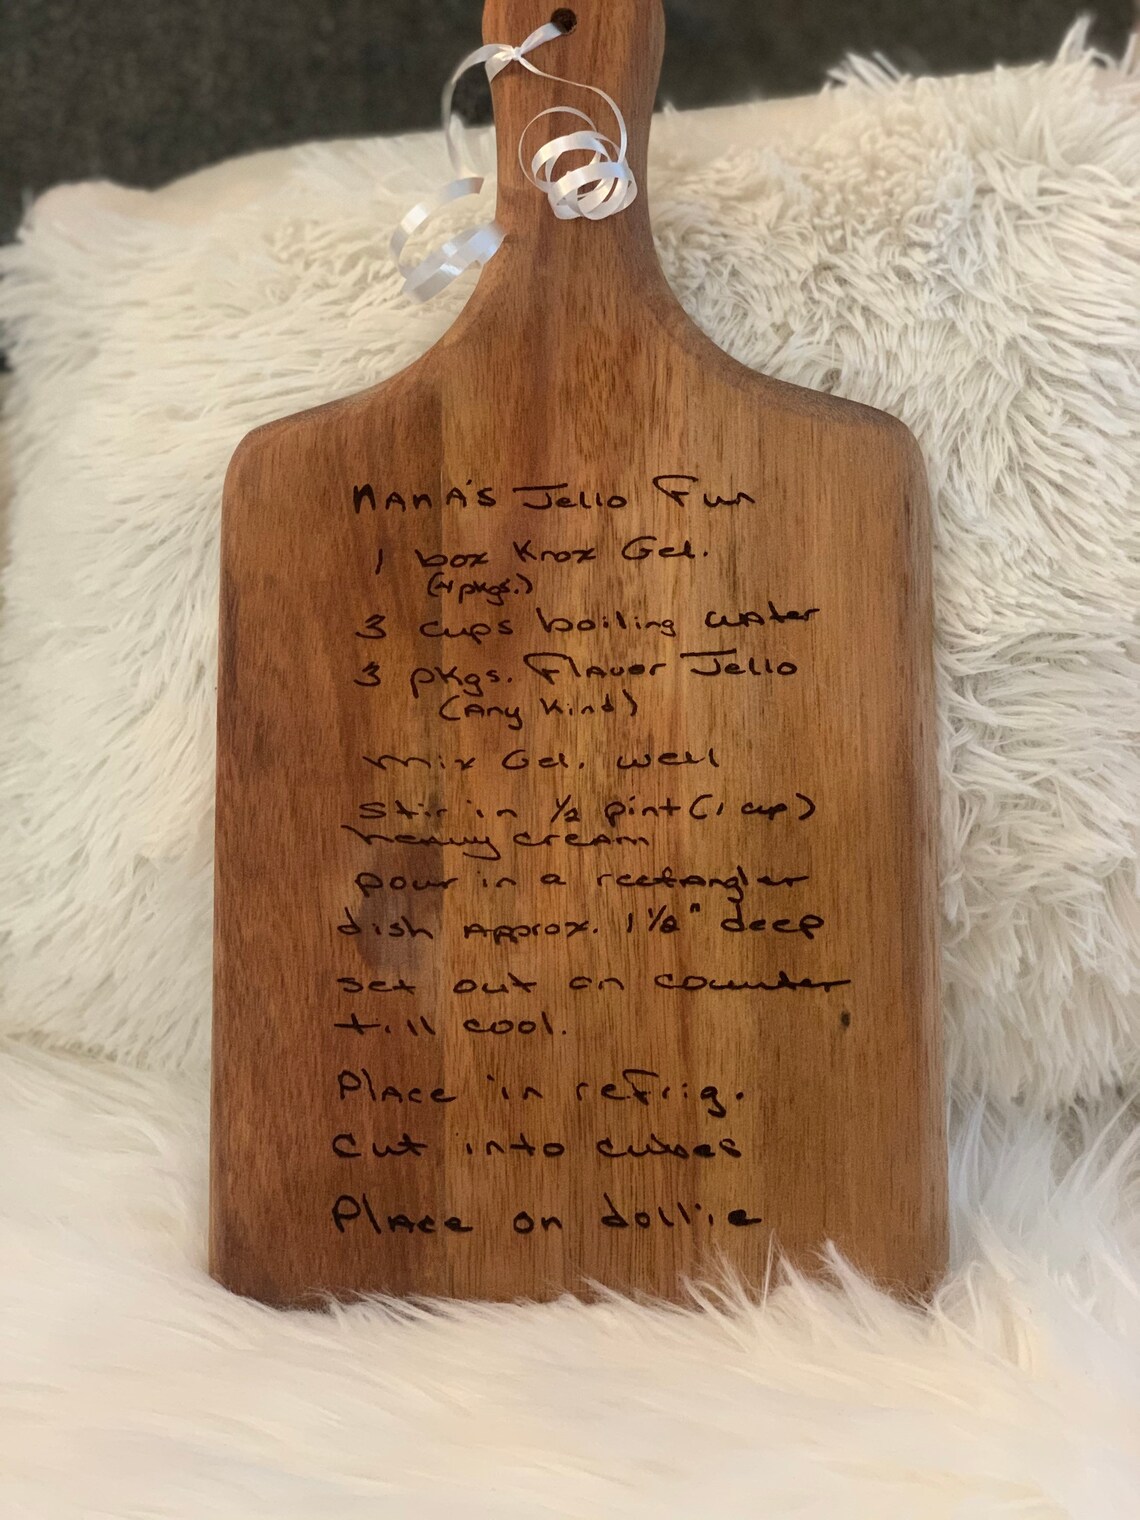 NANA'S Jello Fun
1 box Knox Gel.
(4 pkgs.)
3 cups boiling water
3 pkgs. Flavor Jello
(Any Kind)
mix Gel. well
Stir in ½ pint (1 cup)
heavy cream
pour in a rectangler
dish Approx. 1½" deep
set out on counter
till cool.
Place in refrig.
Cut into cubes
Place on dollie